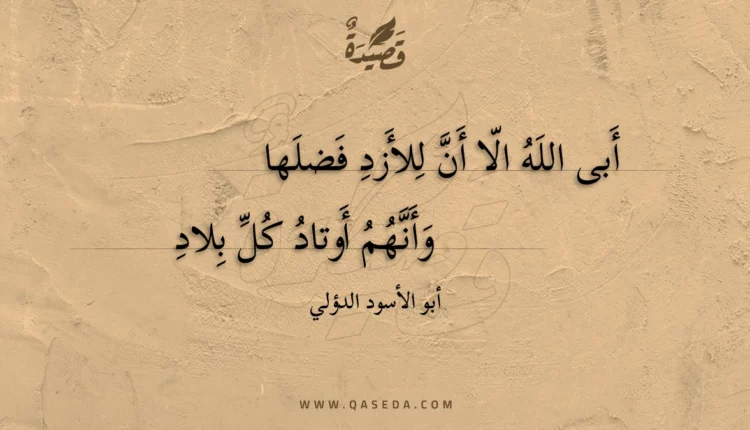 قَصيدَةٌ
أَبى اللَهُ الّا أَنَّ لِلأَزدِ فَضلَها
وَأَنَّهُمُ أَوتادُ كُلِّ بِلادِ
أبو الأسود الدؤلي
WWW.QASEDA.COM